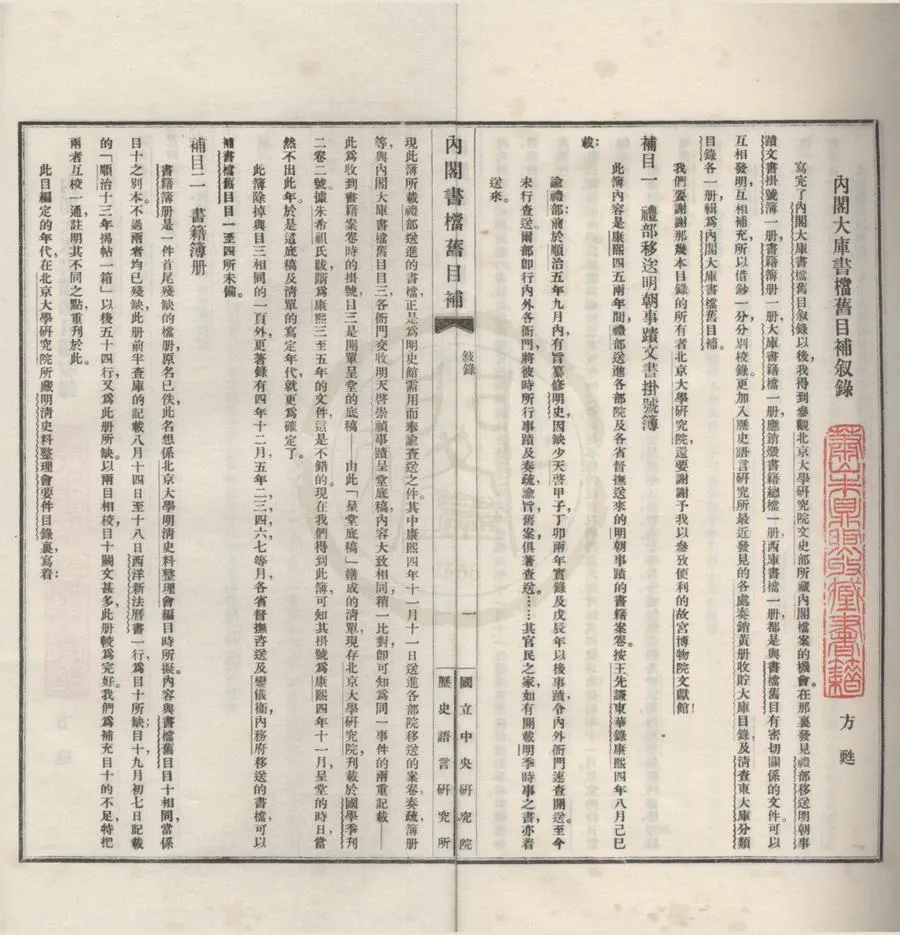 內閣大庫書檔舊目補敘錄
方甦
寫完了內閣大庫書檔舊目叙錄以後，我得到參觀北京大學研究院文史部所藏內閣檔案的機會。在那裏發見禮部移送明朝事
蹟文書掛號簿一册，書籍簿册一册，大庫書籍檔一册，應銷燬書籍總檔一册，西庫書檔一册，都是與書檔舊目有密切關係的文件。可以
互相發明，互相補充，所以借鈔一份，分別校錄。更加入歷史語言研究所最近發見的各處奏銷黃册收貯大庫目錄及清查東大庫分類
目錄各一册，輯爲內閣大庫書檔舊目補。
我們要謝謝那幾本目錄的所有者北京大學研究院，還要謝謝予我以參致便利的故宮博物院文獻館！
補目一　禮部移送明朝事蹟文書掛號簿
此簿內容是康熙四五兩年間，禮部送進各部院及各省督撫送來的明朝事蹟的書籍案卷。按王先謙東華錄康熙四年八月己巳
載：
諭禮部：前於順治五年九月內，有旨纂修明史，因缺少天啓甲子，丁卯兩年實錄及戊辰年以後事蹟，令內外衙門速查開送。至今
未行查送。爾部卽行內外各衙門，將彼時所行事蹟及奏疏，諭旨，舊案，俱著查送。……其官民之家，如有開載明季時事之書，亦着
送來。
內閣書檔舊目補
敍錄
一
國立中央研究院
歷史語言研究所
現此簿所載禮部送進的書檔，正是爲明史館需用而奉諭查送之件。其中康熙四年十一月十一日送進各部院移送的案卷奏疏簿册
等，與內閣大庫書檔舊目目三各衙門交收明天啓崇禎事蹟呈堂底稿，內容大致相同，稍一比對，卽可知爲同一事件的兩重記載——
此爲收到書籍案卷時的掛號，目三是開單呈堂的底稿——由此「呈堂底稿」繕成的清單，現存北京大學研究院，刊載於國學季刊
二卷二號。據朱希祖氏跋斷爲康熙三至五年的文件，這是不錯的。現在我們得到此簿，可知其掛號爲康熙四年十一月，呈堂的時日，當
然不出此年。於是這底稿及清單的寫定年代，就更爲確定了。
此簿除掉與目三相同的一頁外，更著錄有四年十二月，五年二，三，四，六，七等月，各省督撫咨送及鑾儀衞，內務府移送的書檔，可以
補書檔舊目目一至四所未備。
補目二　書籍簿册
書籍簿册是一件首尾殘缺的檔册，原名已佚，此名想係北京大學明清史料整理會編目時所擬。內容與書檔舊目目十相同，當係
目十之別本。不過兩者均已殘缺，此册前半查庫的記載八月十四日至十八日西洋新法曆書一行，爲目十所缺；目十九月初七日記載
的「順治十三年揭帖一箱」以後五十四行，又爲此册所缺。以兩目相校，目十闕文甚多，此册較爲完好。我們爲補充目十的不足，特把
兩者互校一通，註明其不同之點，重刊於此。
此目編定的年代，在北京大學研究院所藏明清史料整理會要件目錄裏寫着：